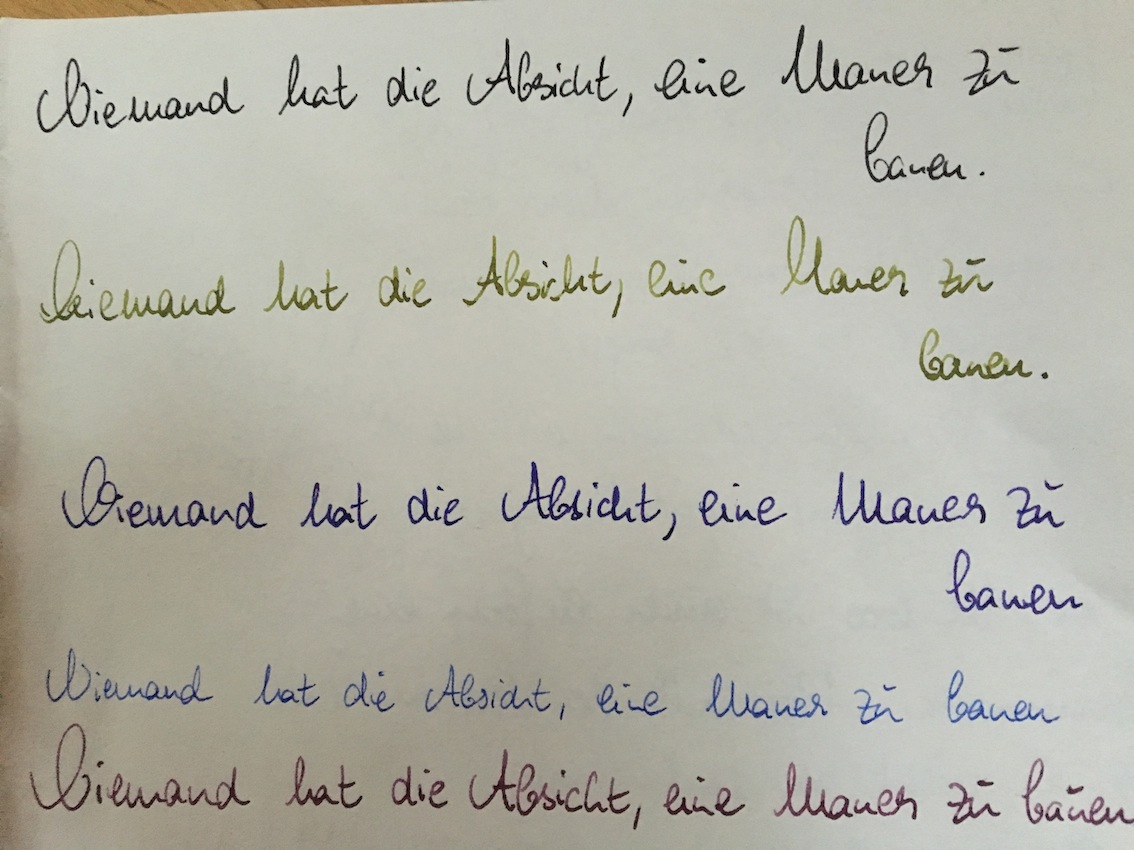 Niemand hat die Absicht, eine Mauer zu
bauen.
Niemand hat die Absicht, eine Mauer zu
bauen.
Niemand hat die Absicht, eine Mauer zu
bauen
Niemand hat die Absicht, eine Mauer zu bauen
Niemand hat die Absicht, eine Mauer zu bauen